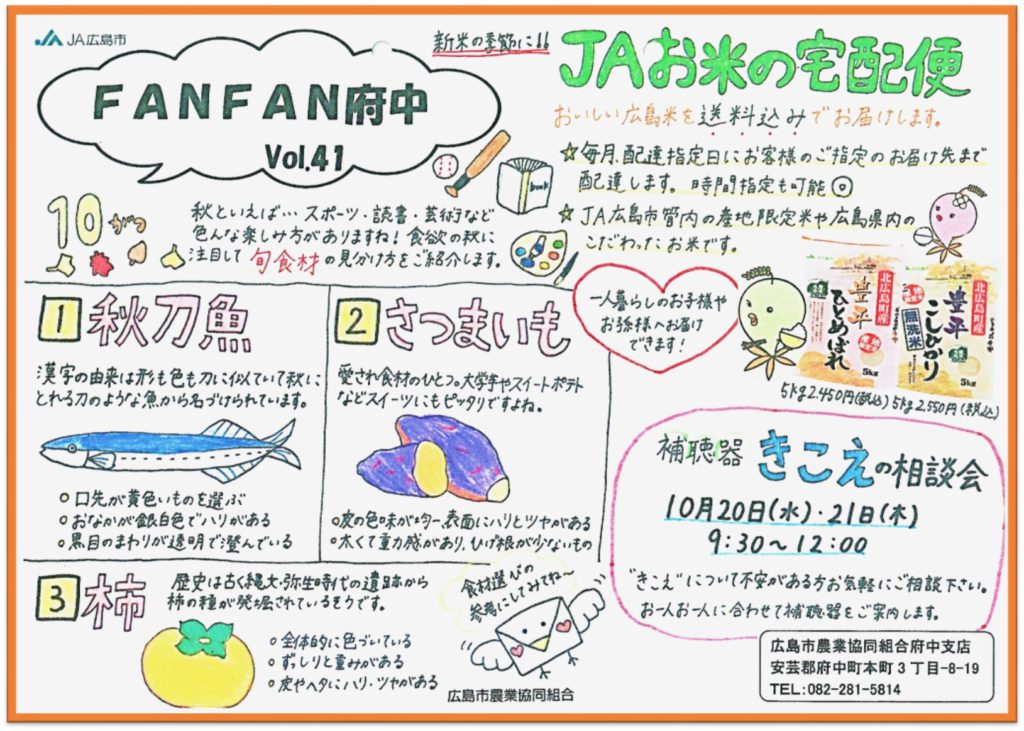 JA広島市
FANFAN府中
Vol.41
新米の季節に!!
JAお米の宅配便
おいしい広島米を送料込みでお届けします。
☆毎月、配達指定日にお客様のご指定のお届け先まで
配達します。時間指定も可能◎
☆JA広島市管内の産地限定米や広島県内の
こだわったお米です。
book
10がつ
秋といえば… スポーツ・読書・芸術など
色んな楽しみ方がありますね!食欲の秋に
注目して 旬食材 の見分け方をご紹介します。
一人暮らしのお子様や
お孫様へお届け
できます!
北広島町産
豊平
ひとめぼれ
5kg
北広島町産
豊平
こしひかり
無洗米
5kg
5kg2,450円(税込) 5kg2,550円(税込)
1 秋刀魚
漢字の由来は形も色も刀に似ていて秋に
とれる刀のような魚から名づけられています。
○口先が黄色いものを選ぶ
○おなかが銀白色でハリがある
○黒目のまわりが透明で澄んでいる
2 さつまいも
愛され食材のひとつ。大学芋やスイートポテト
などスイーツにもピッタリですよね。
○皮の色味が均一、表面にハリとツヤがある
○太くて重力感があり、ひげ根が少ないもの
3 柿
歴史は古く縄文・弥生時代の遺跡から
柿の種が発掘されているそうです。
○全体的に色づいている
○ずっしりと重みがある
○皮やヘタにハリ・ツヤがある
食材選びの
参考にしてみてね~
広島市農業協同組合
補聴器 きこえの相談会
10月20日(水)・21日(木)
9:30~12:00
"きこえ"について不安がある方お気軽にご相談下さい。
お一人お一人に合わせて補聴器をご案内します。
広島市農業協同組合府中支店
安芸郡府中町本町3丁目-8-19
TEL:082-281-5814